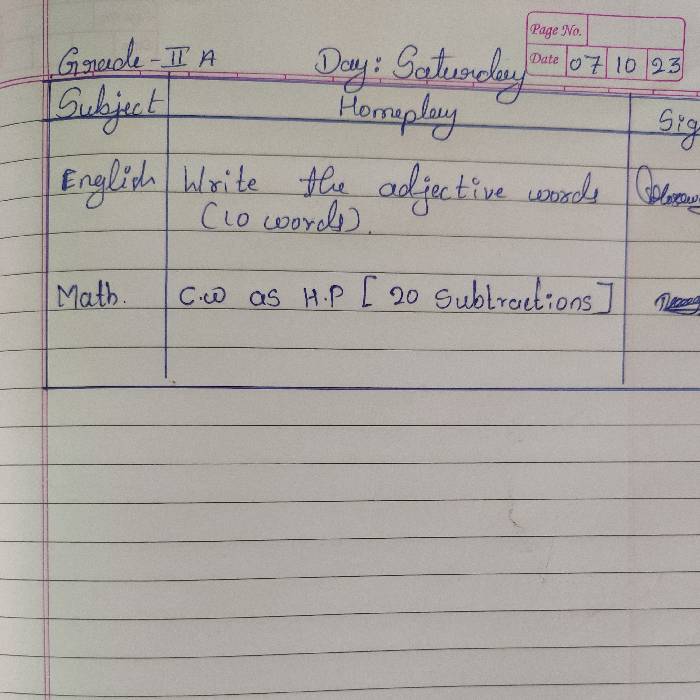 Page No.
Grade - II A Day: Saturday Date 07 10 23
Subject Homeplay Sig
English Write the adjective words
(10 words).
Math. C.W as H.P [ 20 Subtractions ]